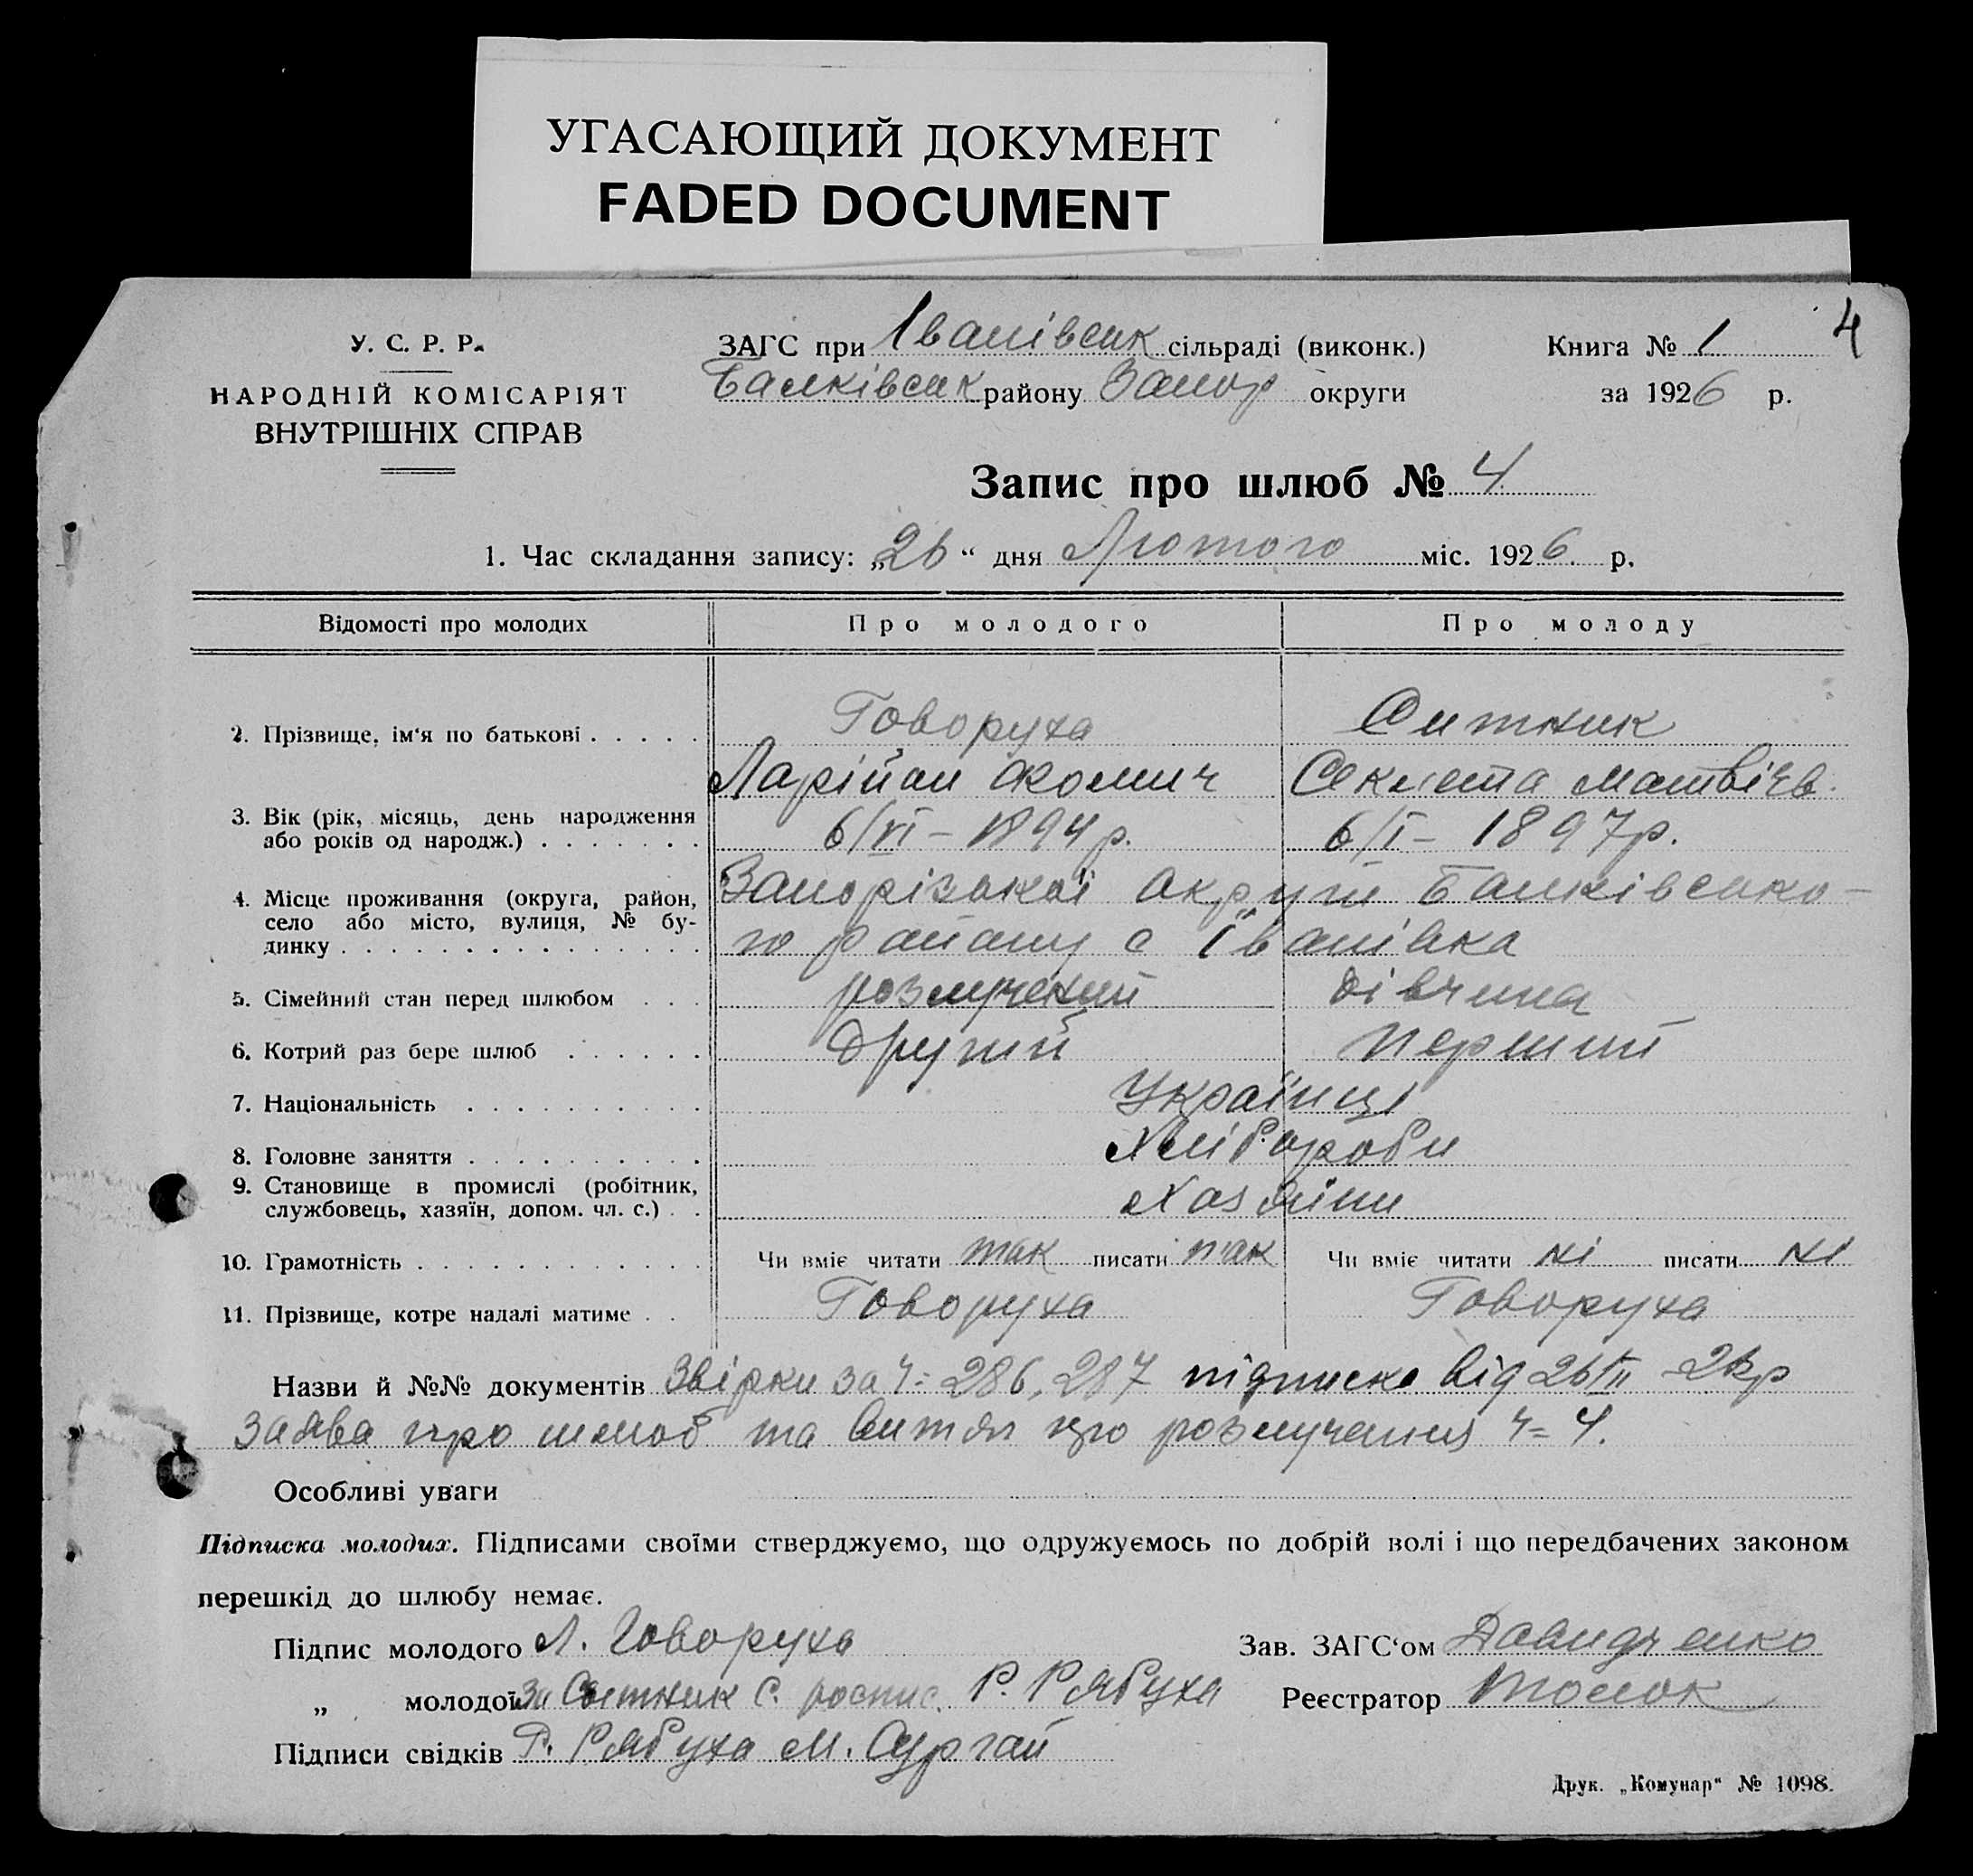 УГАСАЮЩИЙ ДОКУМЕНТ
FADED DOCUMENT
4
У. С. Р. Р.
НАРОДНІЙ КОМІСАРІЯТ
ВНУТРІШНІХ СПРАВ
ЗАГС при Іванівськ сільраді (виконк.)
Балківськ району Запор округи
Книга № 1
за 1926 р.
Запис про шлюб № 4
1. Час складання запису: „26“ дня Лютого міс. 1926 р.
Відомості про молодих Про молодого Про молоду
2. Прізвище, ім'я по батькові Говоруха Ситник
Ларійон Хомич Секлета Матвієв.
3. Вік (рік, місяць, день народження
або років од народж.) 6/VI – 1894 р. 6/I – 1897 р.
4. Місце проживання (округа, район, Запорізької округи Балківсько-
село або місто, вулиця, № бу-
динку го району с Іванівка
5. Сімейний стан перед шлюбом розлучений дівчина
6. Котрий раз бере шлюб другий перший
7. Національність Українці
8. Головне заняття Хлібороби
9. Становище в промислі (робітник,
службовець, хазяїн, допом. чл. с.) Хазяїни
10. Грамотність Чи вміє читати так писати так Чи вміє читати ні писати ні
11. Прізвище, котре надалі матиме Говоруха Говоруха
Назви й №№ документів Звірки за ч= 286, 287 підписка від 26/II – 26р
заява про шлюб та витяг про розлучення ч= 4.
Особливі уваги
Підписка молодих. Підписами своїми стверджуємо, що одружуємось по добрій волі і що передбачених законом
перешкід до шлюбу немає.
Підпис молодого Л. Говоруха
„ молодої за Ситник С. роспис. Р. Рябуха
Підписи свідків Р. Рябуха М. Сургай
Зав. ЗАГС'ом Давидченко
Реєстратор
Друк. „Комунар“ № 1098.